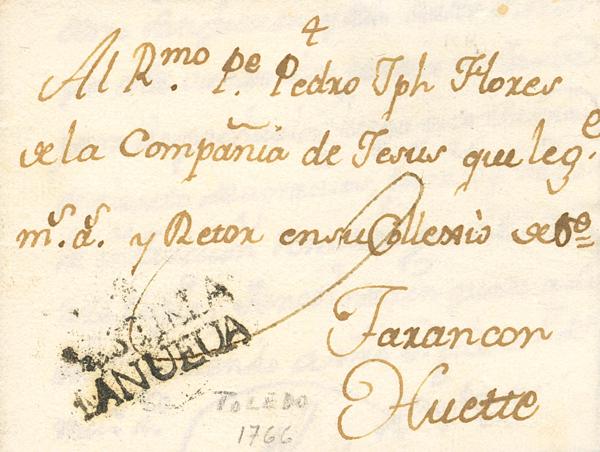 4
Al R.mo P.e Pedro Jph Flores
de la Compañia de Jesus que leg.e
m.s a.s y Retor en su Collexio de
Tarancon
Huette
LANUEUA
TOLEDO
1766